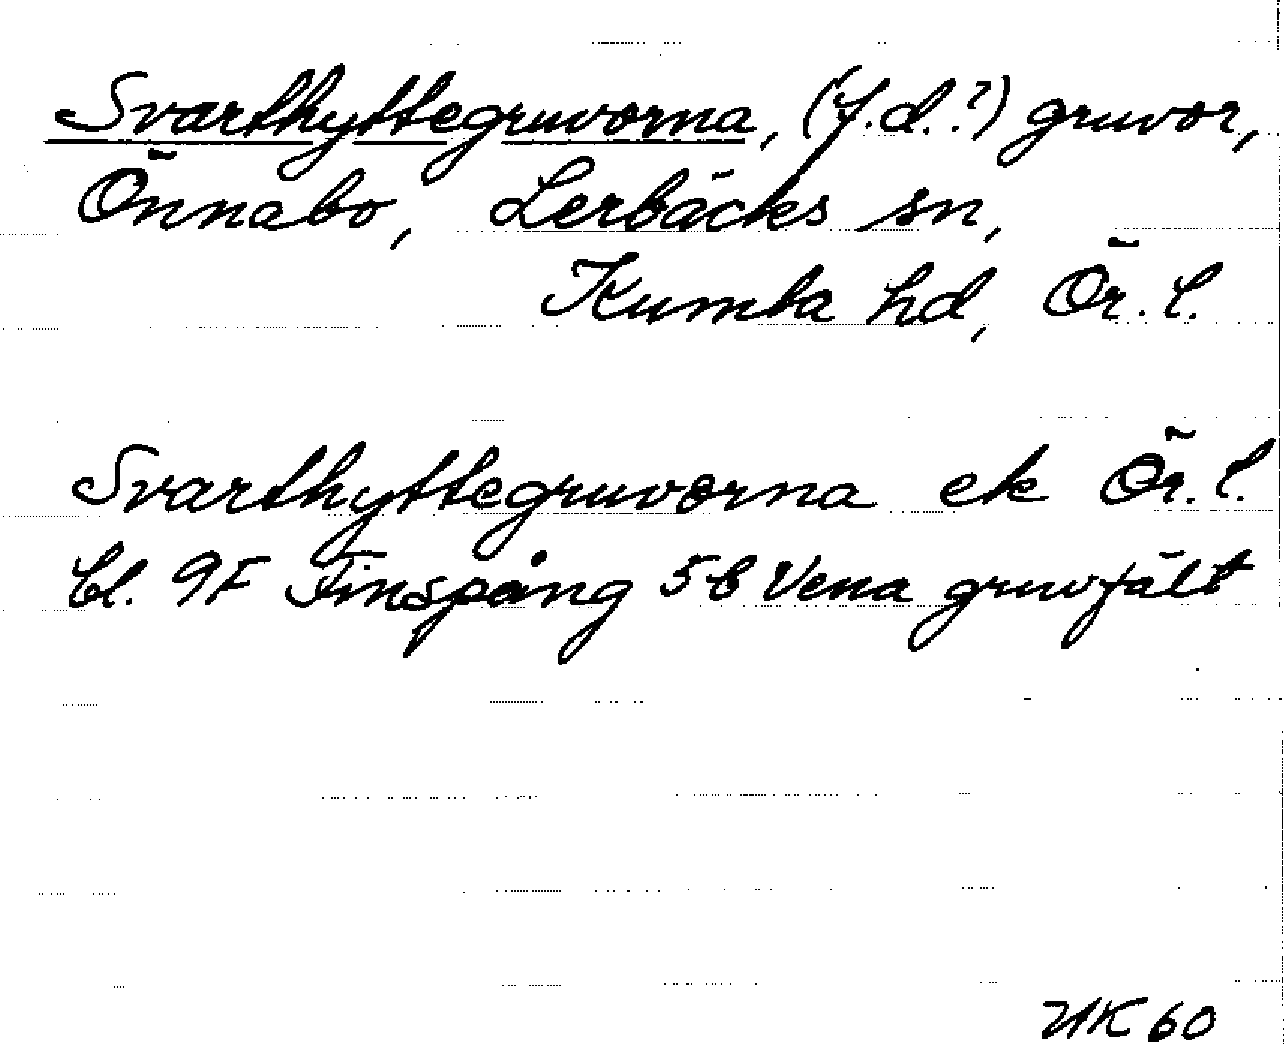 Svarthyttegruvorna, (f.d.?) gruvor,
Önnabo, Lerbäcks sn,
Kumla hd, Ör. l.
Svarthyttegruvorna ek Ör. l.
bl. 9F Finspång 5 b Vena gruvfält
UK 60